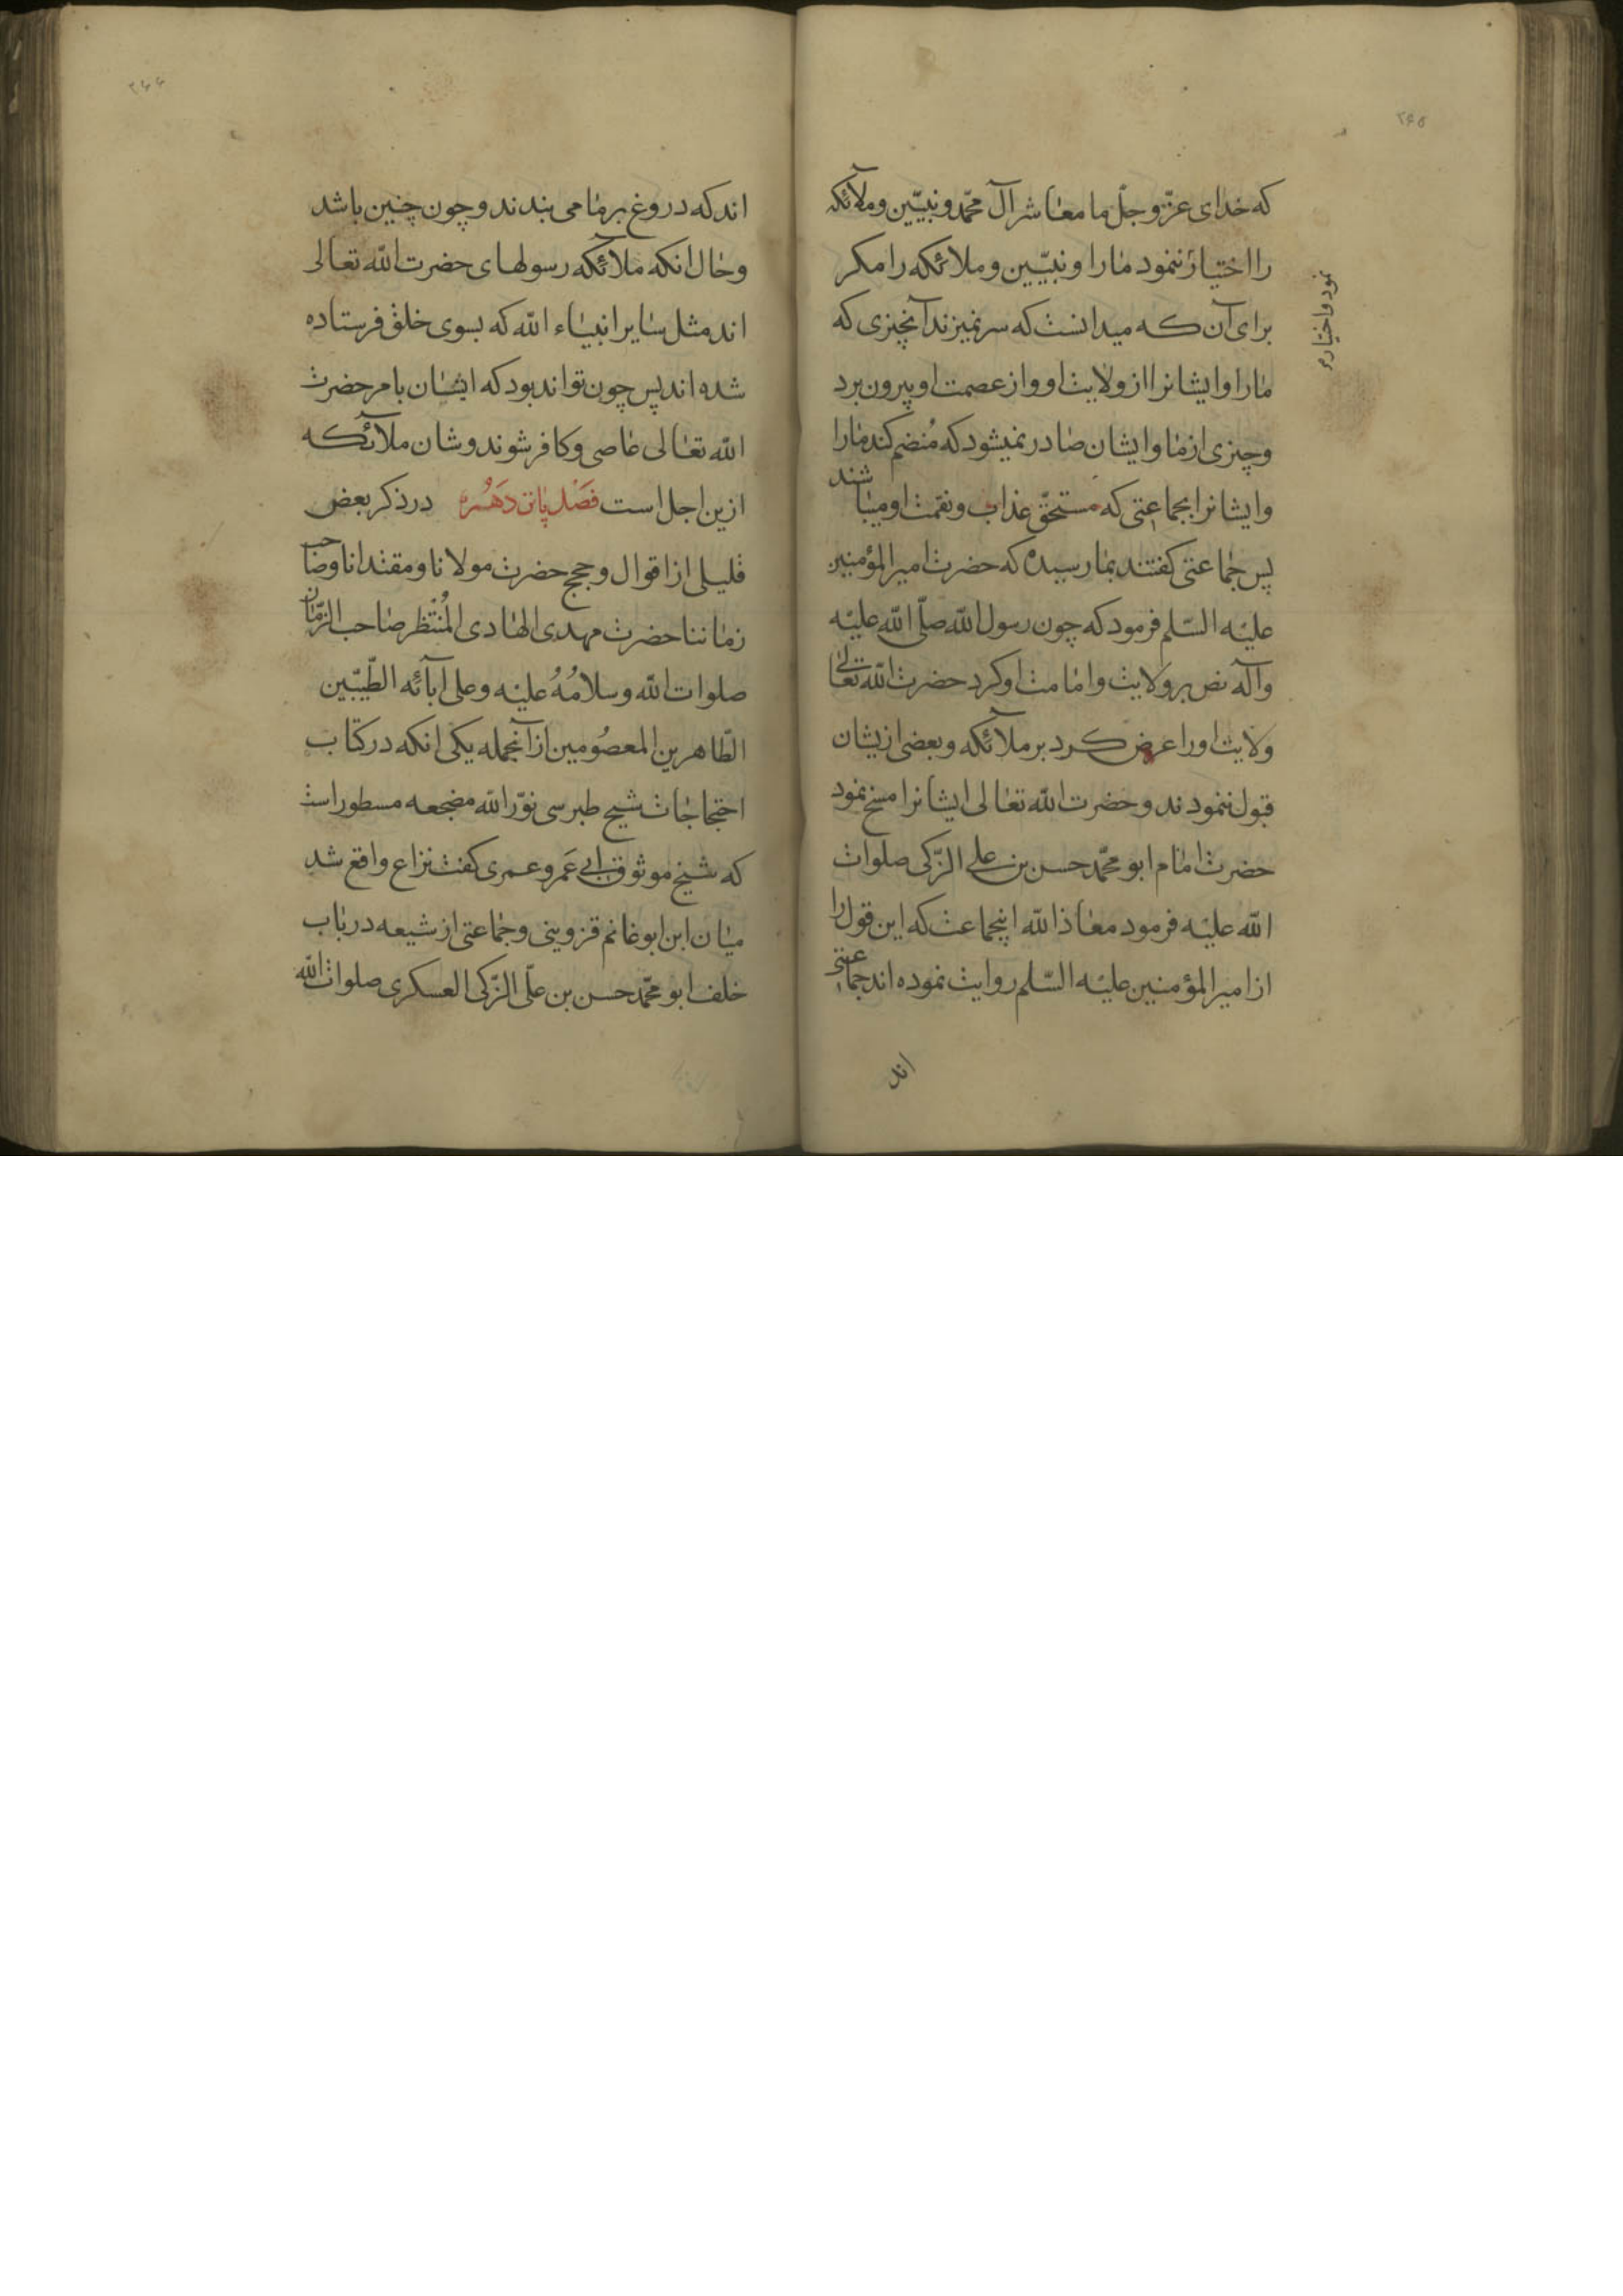 ۲۶۵
که خدای عزّ و جلّ ما معاشر آل محمّد و نبیّین و ملآئکه
را اختیار ننمود مارا و نبیّین و ملائکه را مکر
نمود و اختیار
برای آن که میدانست که سر نمیزند آنچیزی که
مارا و ایشانرا از ولایت او و از عصمت او بیرون برد
و چیزی از ما و ایشان صادر نمیشود که مُنضم کند مارا
و ایشانرا بجماعتی که مستحقّ عذاب و نقمت او میباشند
پس جماعتی کفتند بما رسیده که حضرت امیر المؤمنین
علیه السّلم فرمود که چون رسول الله صلّی الله علیه
و آله نص بر ولایت و امامت او کرد حضرت الله تعالی
ولایت او را عرض کرد بر ملآئکه و بعضی ازیشان
قبول ننمودند و حضرت الله تعالی ایشانرا مسخ نمود
حضرت امام ابو محمّد حسن بن علی الزّکی صلوات
الله علیه فرمود معاذ الله اینجماعت که این قول را
از امیر المؤمنین علیه السّلم روایت نموده اند جماعتی
اند
۲۶۶
اند که دروغ بر ما می بندند و چون چنین باشد
و حال انکه ملآئکه رسولهای حضرت الله تعالی
اند مثل سایر انبیاء الله که بسوی خلق فرستاده
شده اند پس چون تواند بود که ایشان بامر حضرت
الله تعالی عاصی و کافر شوند و شان ملآئکه
ازین اجل است فصل پانزدهم در ذکر بعض
قلیلی از اقوال و حجج حضرت مولانا و مقتدانا و صاحب
زماننا حضرت مهدی الهادی المُنتظر صاحب الزّمان
صلوات الله و سلامُهُ علیه و علی آبآئه الطّیّبین
الطّاهرین المعصُومین از آنجمله یکی انکه در کتاب
احتجاجات شیخ طبرسی نوّر الله مضجعه مسطور است
که شیخ موثوق ابی عَمرو عمری کفت نزاع واقع شد
میان ابن ابو غانم قزوینی و جماعتی از شیعه در باب
خلف ابو محمّد حسن بن علّی الزّکی العسکری صلوات الله